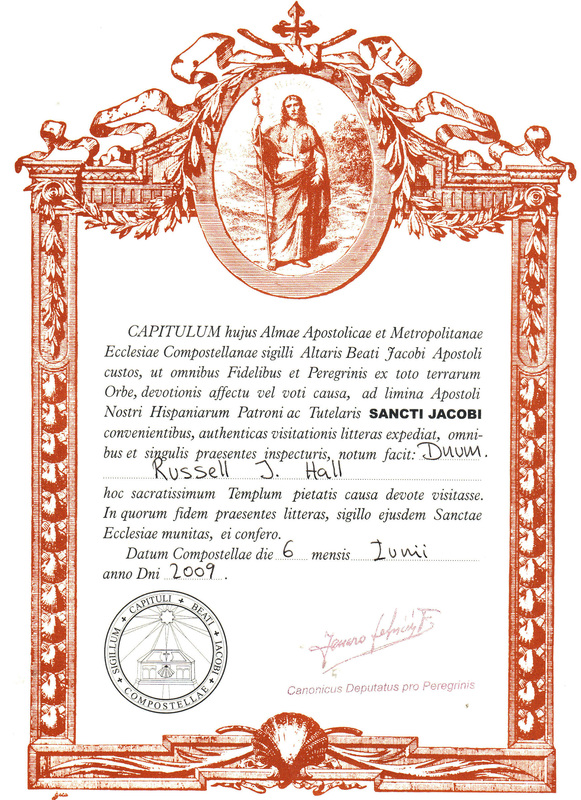 CAPITULUM hujus Almae Apostolicae et Metropolitanae
Ecclesiae Compostellanae sigilli Altaris Beati Jacobi Apostoli
custos, ut omnibus Fidelibus et Peregrinis ex toto terrarum
Orbe, devotionis affectu vel voti causa, ad limina Apostoli
Nostri Hispaniarum Patroni ac Tutelaris SANCTI JACOBI
convenientibus, authenticas visitationis litteras expediat, omni-
bus et singulis praesentes inspecturis, notum facit: Dnum.
Russell J. Hall
hoc sacratissimum Templum pietatis causa devote visitasse.
In quorum fidem praesentes litteras, sigillo ejusdem Sanctae
Ecclesiae munitas, ei confero.
Datum Compostellae die 6 mensis Iunii
anno Dni 2009.
SIGILLUM CAPITULI BEATI IACOBI COMPOSTELLAE
Canonicus Deputatus pro Peregrinis